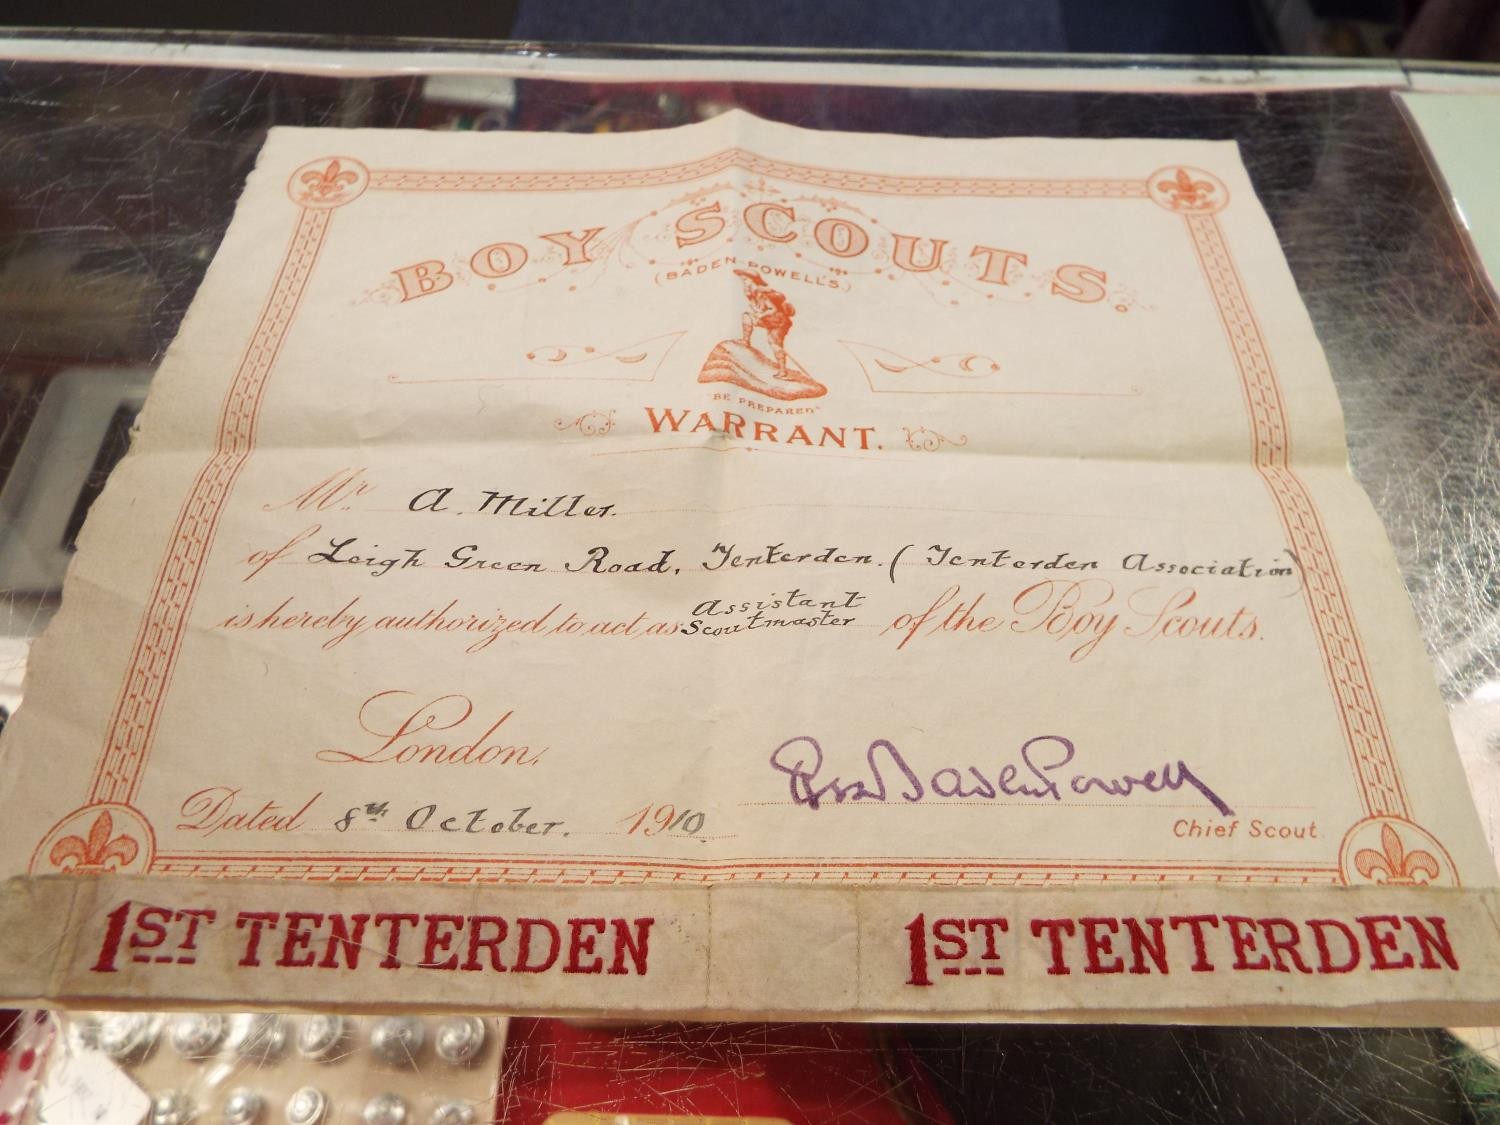 BOY SCOUTS.
(BADEN POWELL'S)
"BE PREPARED"
WARRANT.
Mr. A. Miller.
of Leigh Green Road, Tenterden. (Tenterden Association)
is hereby authorized to act as Assistant Scoutmaster of the Boy Scouts.
London,
Dated 8th October. 1910
Baden Powell
Chief Scout
1ST TENTERDEN 1ST TENTERDEN